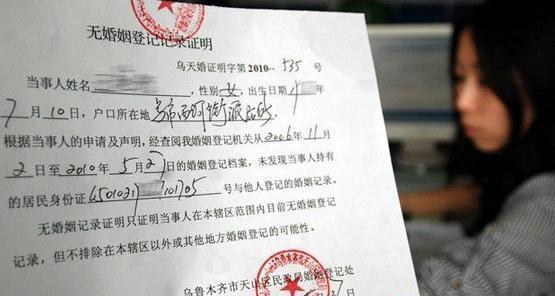 无婚姻登记记录证明
乌天婚证明字第2010--535 号
当事人姓名 ，性别 女，出生日期 年
7 月 10 日，户口所在地
根据当事人的申请及声明，经查阅我婚姻登记机关从 2006 年 11 月
2 日至 2010 年 5 月 27 日的婚姻登记档案，未发现当事人持有
的居民身份证 号与他人登记的婚姻记录。
无婚姻记录证明只证明当事人在本辖区范围内目前无婚姻登记
记录，但不排除在本辖区以外或其他地方婚姻登记的可能性。
乌鲁木齐市天山区民政局婚姻登记处